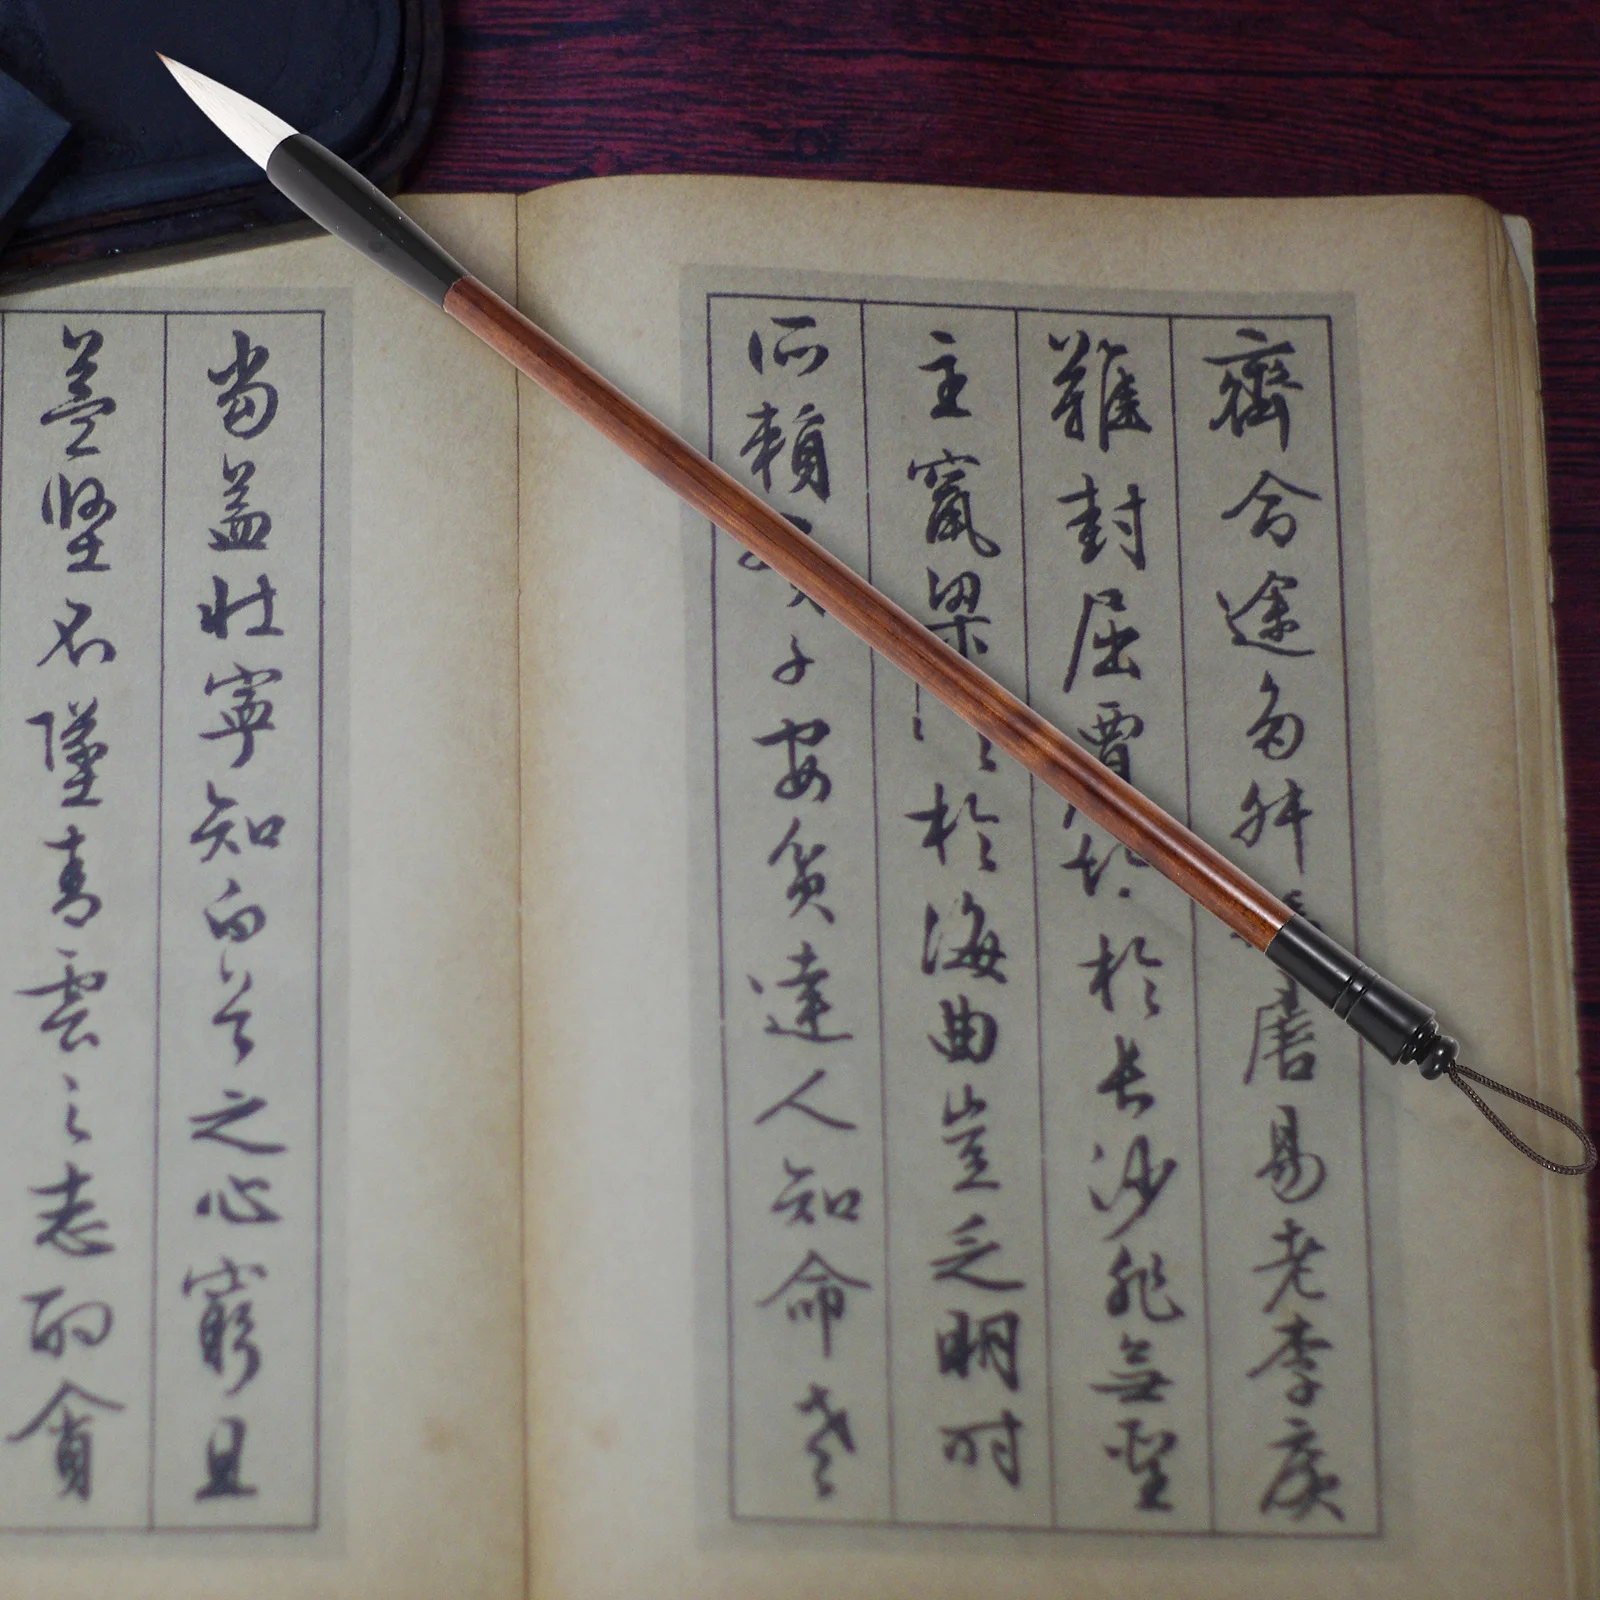 齊命途多舛唐易老李廣
難封屈賈於長沙非無聖
主竄梁於海曲豈乏明時
所賴子安貧達人知命老
當益壯寧知白首之心窮且
益堅不墜青雲之志酌貪